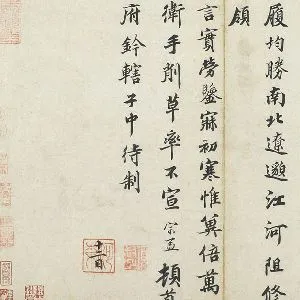 履均勝南北遼邈江河阻修
領
言實勞鑒寐初寒惟兾倍萬
衛手削草率不宣宗孟頓首
府鈐轄子中待制
十一日